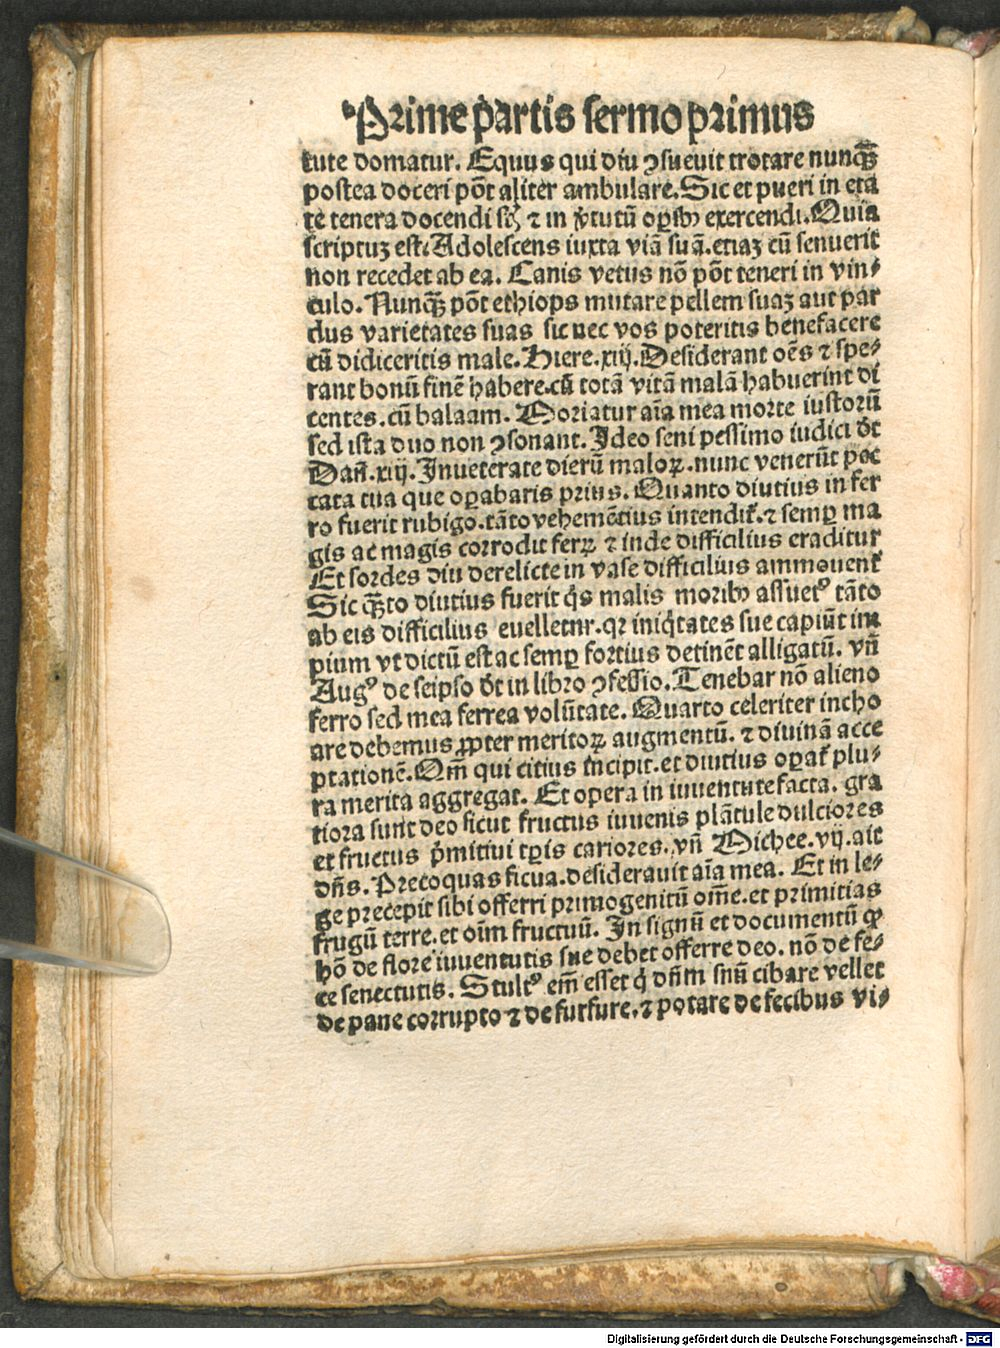 Prime partis sermo primus
tute domatur. Equus qui diu ꝯsueuit trotare nunq̄ꝫ
postea doceri pōt aliter ambulare. Sic et pueri in eta
te tenera docendi st̄ ⁊ in v̓tutū oꝑibꝰ exercendi. Quia
scriptuꝫ est. Adolescens iuxta viā suā. etiaꝫ cū senuerit
non recedet ab ea. Canis vetus nō pōt teneri in vin⸗
culo. Nunq̄ꝫ pōt ethiops mutare pellem suaꝫ aut par
dus varietates suas sic nec vos poteritis benefacere
cū didiceritis male. Hiere.xiij. Desiderant oēs ⁊ spe⸗
rant bonū finē habere. cū totā vitā malā habuerint di
centes. cū balaam. Moriatur aīa mea morte iustorū
sed ista duo non ꝯsonant. Ideo seni pessimo iudici dr̄
Dań.xiij. Inueterate dierū maloꝝ. nunc venerūt pec
cata tua que oꝑabaris prius. Quanto diutius in fer
ro fuerit rubigo. tāto vehemētius intendit᷑. ⁊ semꝑ ma
gis ac magis corrodit ferꝝ ⁊ inde difficilius eraditur
Et sordes diu derelicte in vase difficilius ammouent᷑
Sic q̄ꝫto diutius fuerit q̇s malis moribꝰ assuetꝰ tāto
ab eis difficilius euelletnr. qꝛ iniq̇tates sue capiūt im
pium vt dictū est ac semꝑ fortius detinēt alligatū. vn̄
Augꝰ de seipso dr̄ in libro ꝯfessio. Tenebar nō alieno
ferro sed mea ferrea volūtate. Quarto celeriter incho
are debemus ꝓpter meritoꝝ augmentū. ⁊ diuinā acce
ptationē. Qm̄ qui citius incipit. et diutius oꝑat᷑ plu⸗
ra merita aggregat. Et opera in iuuentute facta. gra
tiora sunt deo sicut fructus iuuenis plātule dulciores
et fructus p̓mitiui tꝑis cariores. vn̄ Michee.vij. ait
dn̄s. Precoquas ficus. desiderauit aīa mea. Et in le⸗
ge precepit sibi offerri primogenitū om̄e. et primitias
frugū terre. et oīm fructuū. In signū et documentū ꝙ
hō de flore iuuentutis sue debet offerre deo. nō de fe⸗
ce senectutis. Stultꝰ em̄ esset q̇ dn̄m snū cibare vellet
de pane corrupto ⁊ de furfure. ⁊ potare de fecibus vi⸗
Digitalisierung gefördert durch die Deutsche Forschungsgemeinschaft - DFG